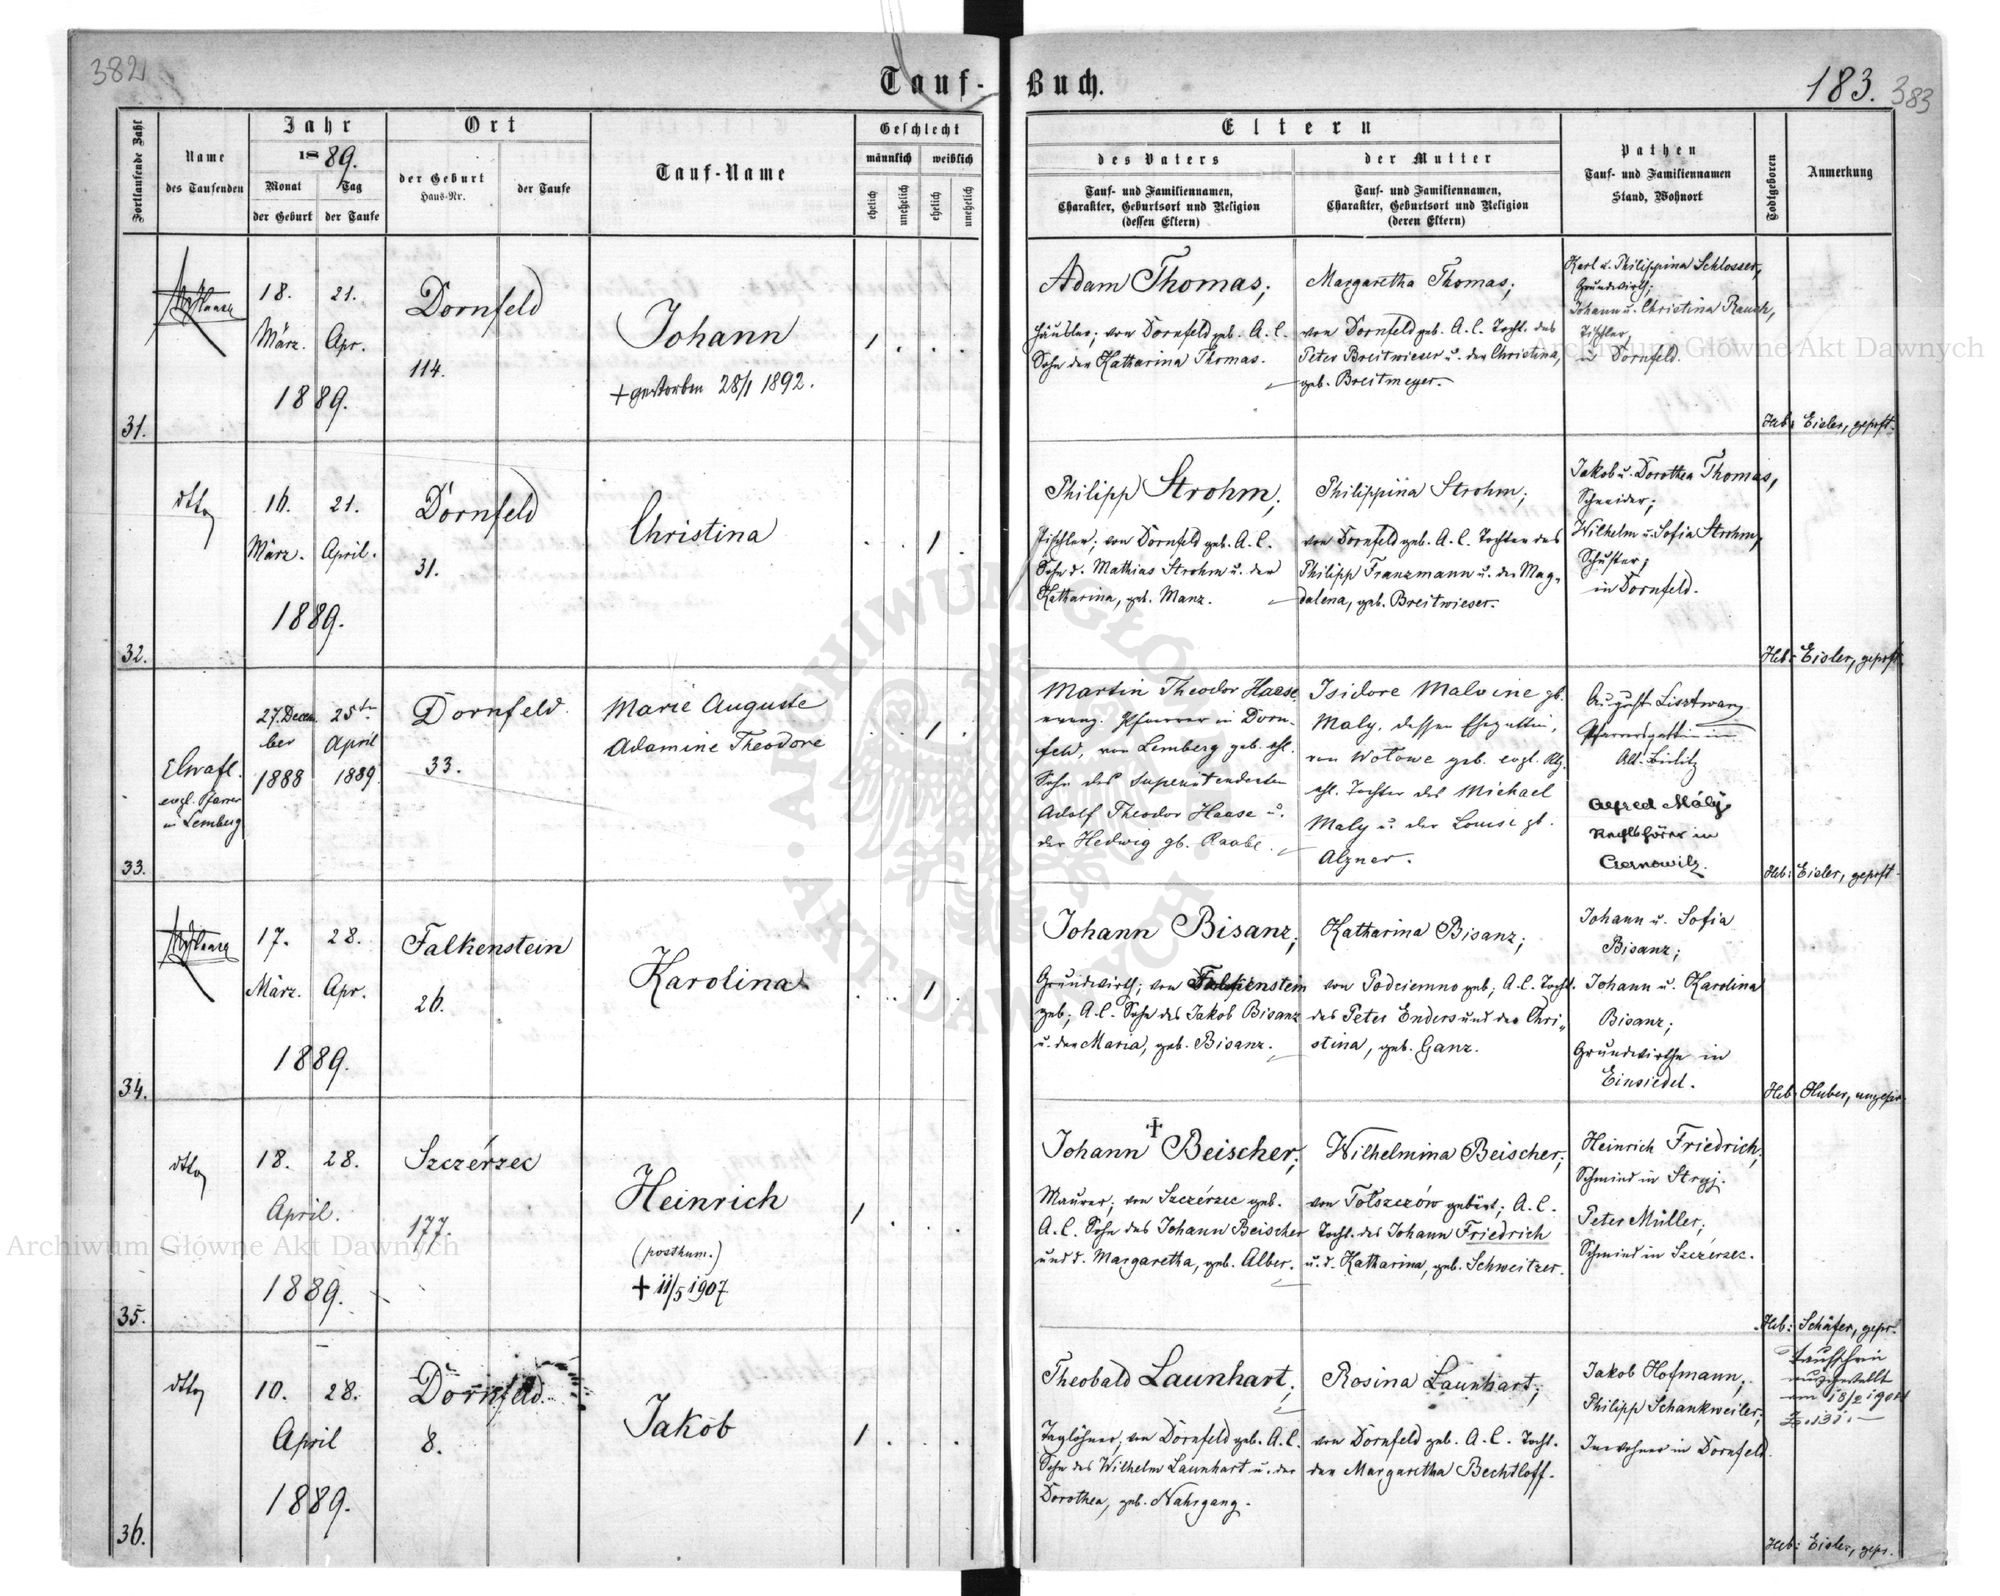 382
Tauf-
Buch.
183.
383
Fortlaufende Zahl
Name
des Taufenden
Jahr
1889.
Monat
Tag
der Geburt
der Taufe
Ort
der Geburt
Haus-Nr.
der Taufe
Tauf-Name
Geschlecht
männlich
weiblich
ehelich
unehelich
ehelich
unehelich
Eltern
des Vaters
Tauf- und Familiennamen,
Charakter, Geburtsort und Religion
(dessen Eltern)
der Mutter
Tauf- und Familiennamen,
Charakter, Geburtsort und Religion
(deren Eltern)
Pathen
Tauf- und Familiennamen
Stand, Wohnort
Todtgeboren
Anmerkung
31.
18.
März.
21.
Apr.
1889.
Dornfeld
114.
Johann
+ gestorben 28/1 1892.
1
Adam Thomas;
Häusler; von Dornfeld geb. A.C.
Sohn der Katharina Thomas.
Margaretha Thomas;
von Dornfeld geb. A.C. Tocht. des
Peter Breitwieser u. der Christina,
geb. Breitmeyer.
Karl u. Philippina Schlosser,
Grundwirth;
Johann u. Christina Rauch,
Tischler,
in Dornfeld.
Heb: Eisler, geprft.
32.
dtto
16.
März.
21.
April.
1889.
Dornfeld
31.
Christina
1
Philipp Strohm;
Tischler; von Dornfeld geb. A.C.
Sohn d. Mathias Strohm u. der
Katharina, geb. Manz.
Philippina Strohm;
von Dornfeld geb. A.C. Tochter des
Philipp Franzmann u. der Mag-
dalena, geb. Breitwieser.
Jakob u. Dorothea Thomas,
Schneider;
Wilhelm u. Sofia Strohm,
Schuster;
in Dornfeld.
Heb: Eisler, geprft.
33.
evgl. Pfarrer
in Lemberg
27. Decem-
ber
1888
25ten
April
1889
Dornfeld.
33.
Marie Auguste
Adamine Theodore
1
Martin Theodor Haase
evang. Pfarrer in Dorn-
feld, von Lemberg geb. ehl.
Sohn des Superintendenten
Adolf Theodor Haase u.
der Hedwig gb. Raabe.
Isidore Malvine gb.
Maly, dessen Ehegattin,
von geb. evgl. Rlg.
ehl. Tochter des Michael
Maly u. der Louise gb.
Alzner.
August
Pfarrersgattin in
Alt-Bielitz
Alfred Mály
Rechtshörer in
Czernowitz.
Heb: Eisler, geprft.
34.
17.
März.
28.
Apr.
1889.
Falkenstein
26.
Karolina
1
Johann Bisanz;
Grundwirth; von Falkenstein
geb; A.C. Sohn des Jakob Bisanz
u. der Maria, geb. Bisanz.
Katharina Bisanz;
von Podciemno geb; A.C. Tocht.
des Peter Enders und der Chri-
stina, geb. Ganz.
Johann u. Sofia
Bisanz;
Johann u. Karolina
Bisanz;
Grundwirthe in
Einsiedel.
Heb: Huber, ungepr.
35.
dtto
18.
April.
28.
1889.
Szczérzec
177.
Heinrich
(posthum.)
+ 11/5 1907
1
Johann † Beischer;
Maurer; von Szczérzec geb.
A.C. Sohn des Johann Beischer
und d. Margaretha, geb. Alber.
Wilhelmina Beischer;
von Tołszczów gebürt; A.C.
Tocht. des Johann Friedrich
u. d. Katharina, geb. Schweitzer.
Heinrich Friedrich,
Schmied in Stryj.
Peter Müller;
Schmied in Szczérzec.
Heb: Schäfer, gepr.
36.
dtto
10.
April
28.
1889.
Dornfeld.
8.
Jakob
1
Theobald Launhart;
Taglöhner; von Dornfeld geb. A.C.
Sohn des Wilhelm Launhart u. der
Dorothea, geb. Nahrgang.
Rosina Launhart;
von Dornfeld geb. A.C. Tocht.
der Margaretha Bechtloff.
Jakob Hofmann;
Philipp Schankweiler;
Inwohner in Dornfeld.
Taufschein
ausgestellt
am 18/2 1904
Z. 131.
Heb: Eisler, gepr.
Archiwum Główne Akt Dawnych
Archiwum Główne Akt Dawnych
ARCHIWUM GŁÓWNE · AKT DAWNYCH ·